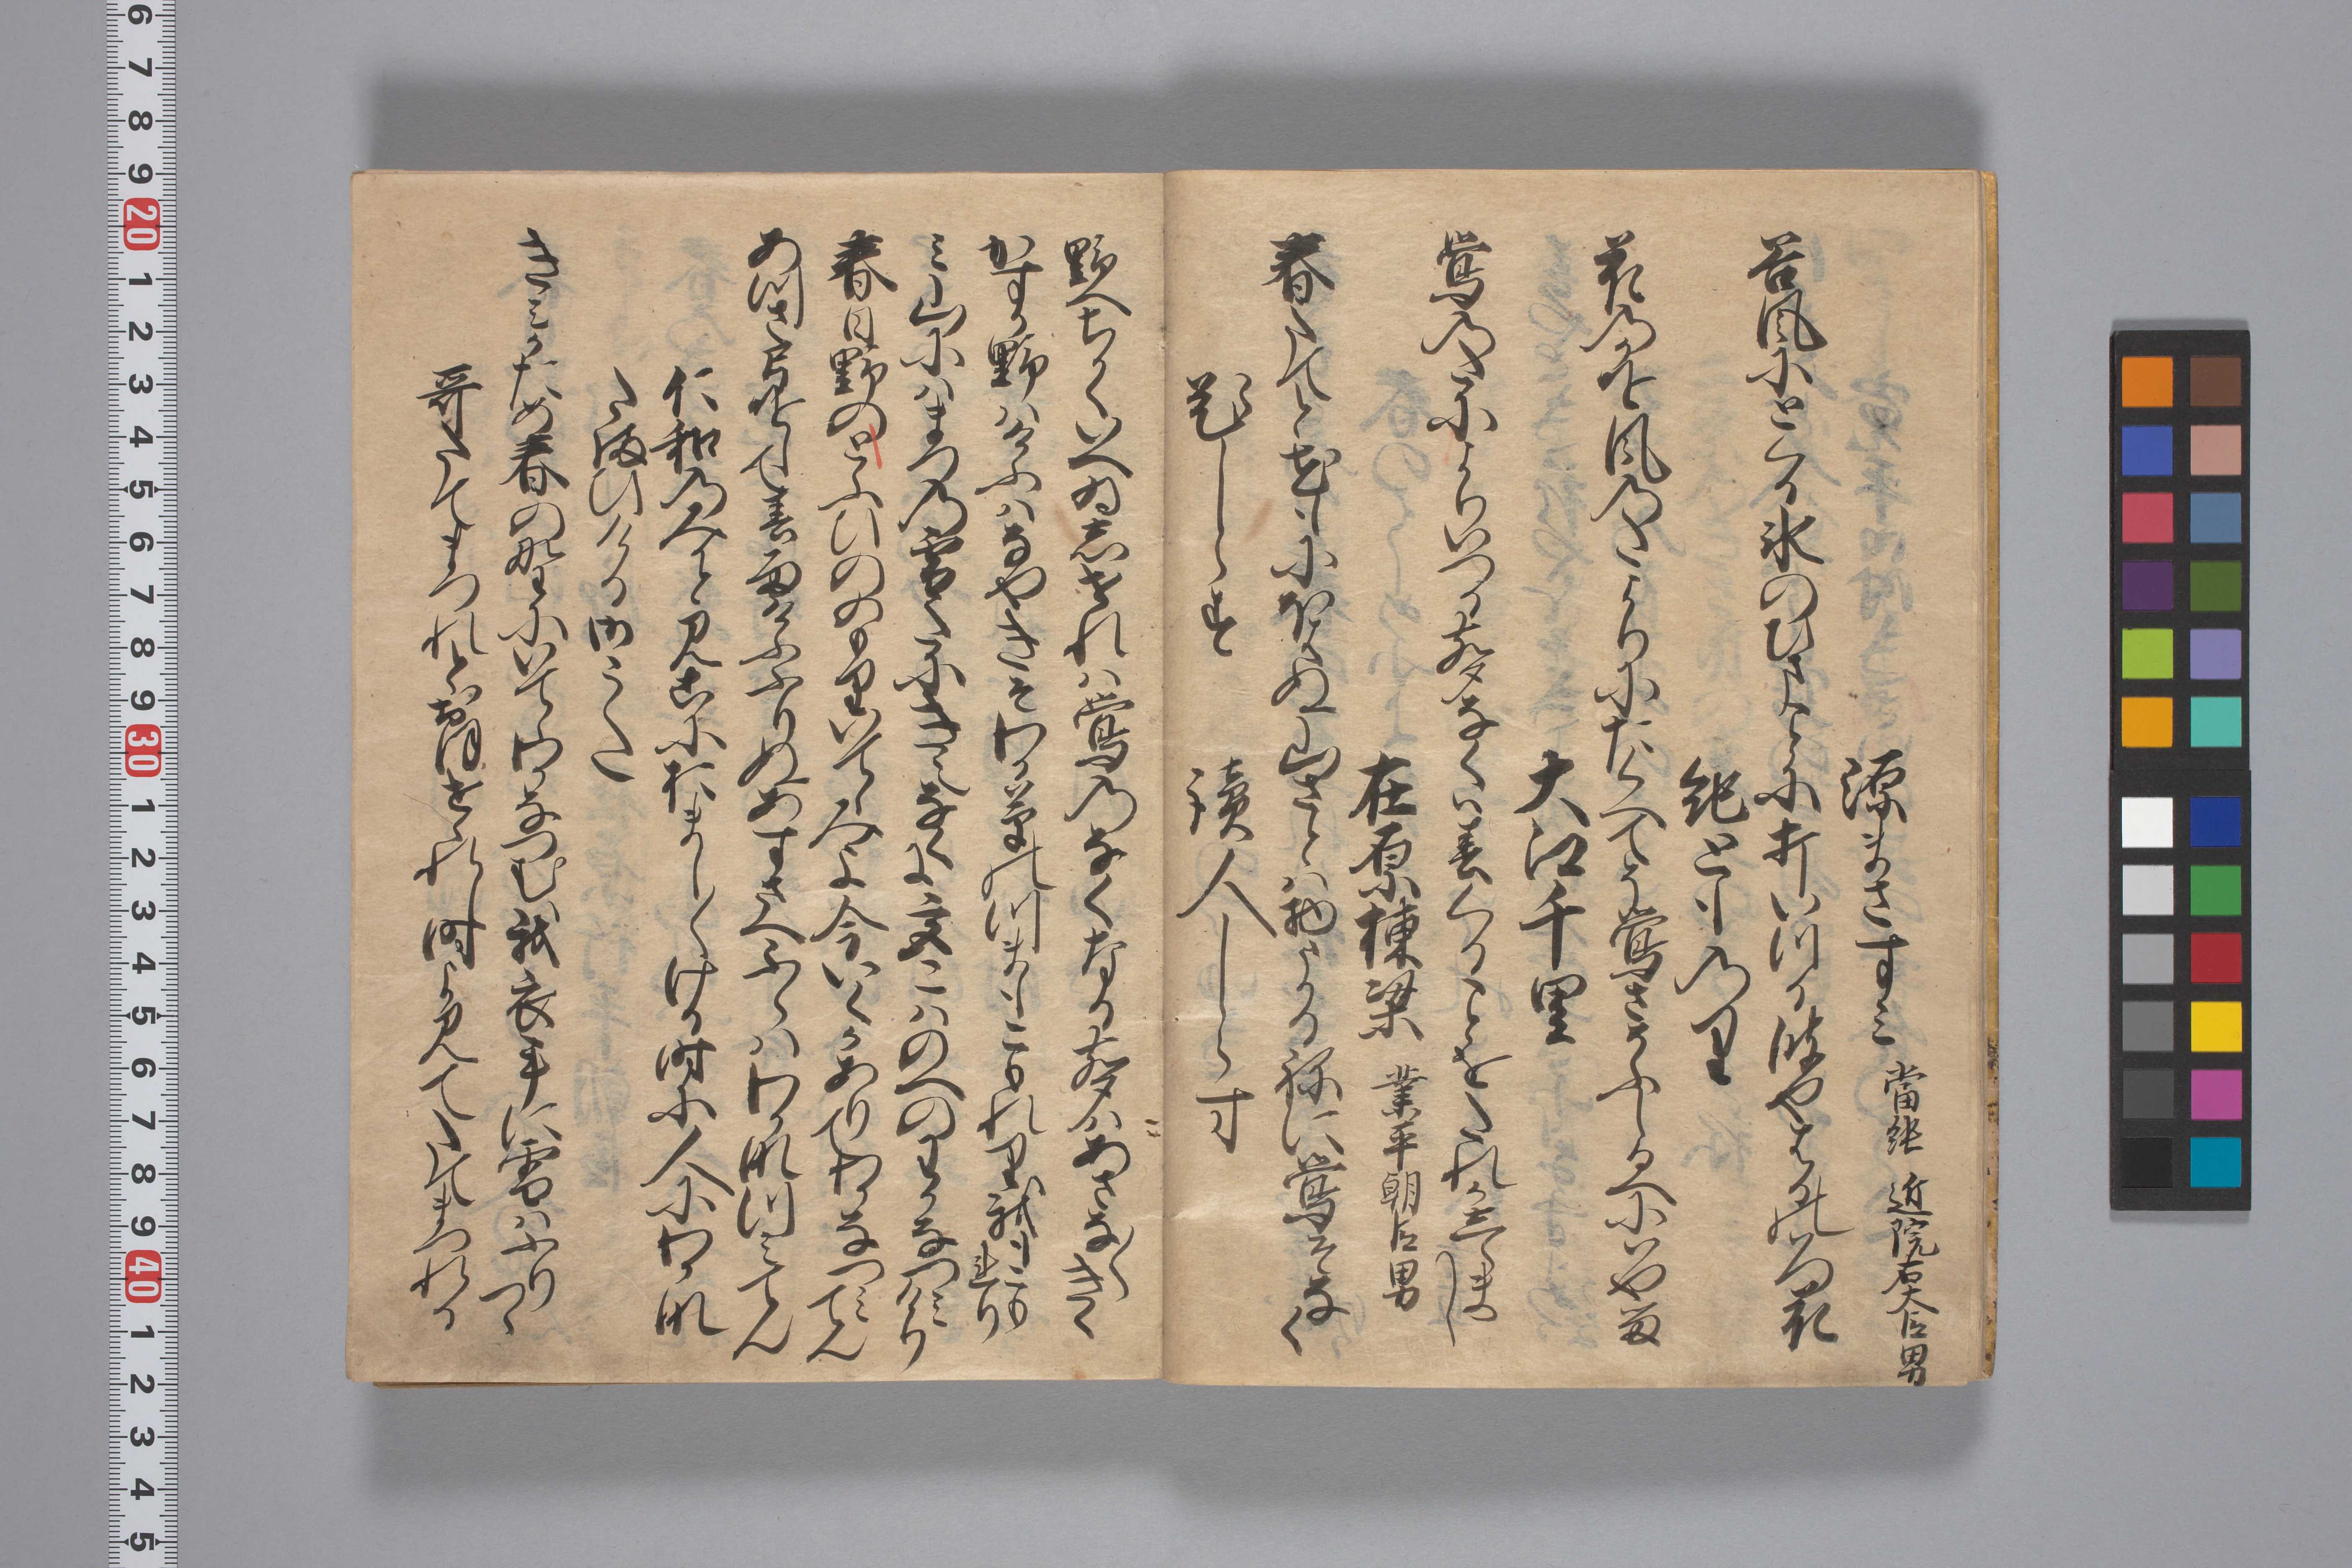 源まさすみ 當純 近院右大臣男
谷風にとくる氷のひまことに打いつる波やはるのはつ花
紀とものり
花のかを風のたよりにたくへてそ鶯さそふしるへにはやる
大江千里
鶯の谷よりいつる声なくは春くることをたれかしらまし
在原棟梁 業平朝臣男
春たてと花もにほはぬ山さとは物うかるねに鶯そなく
題しらす
読人しらす
野へちかくいへゐしせれは鶯のなくなる声はあさなあさなきく
かすか野はけふはなやきそわか草のつまもこもれり我もこもれり
み山にはまつの雪たにきえなくに都はのへのわかなつみけり
春日野のとふひのの守いてゝみよ今いくかありてわかなつみてん
あつさ弓をして春雨けふふりぬあすさへふらはわかなつみてん
仁和のみかとみこにおましましける時に人にわかな
たまひける御うた
きみかため春の野にいてゝわかなつむ我衣手に雪はふりつゝ
哥たてまつれとおほせられし時よみてたてまつれる